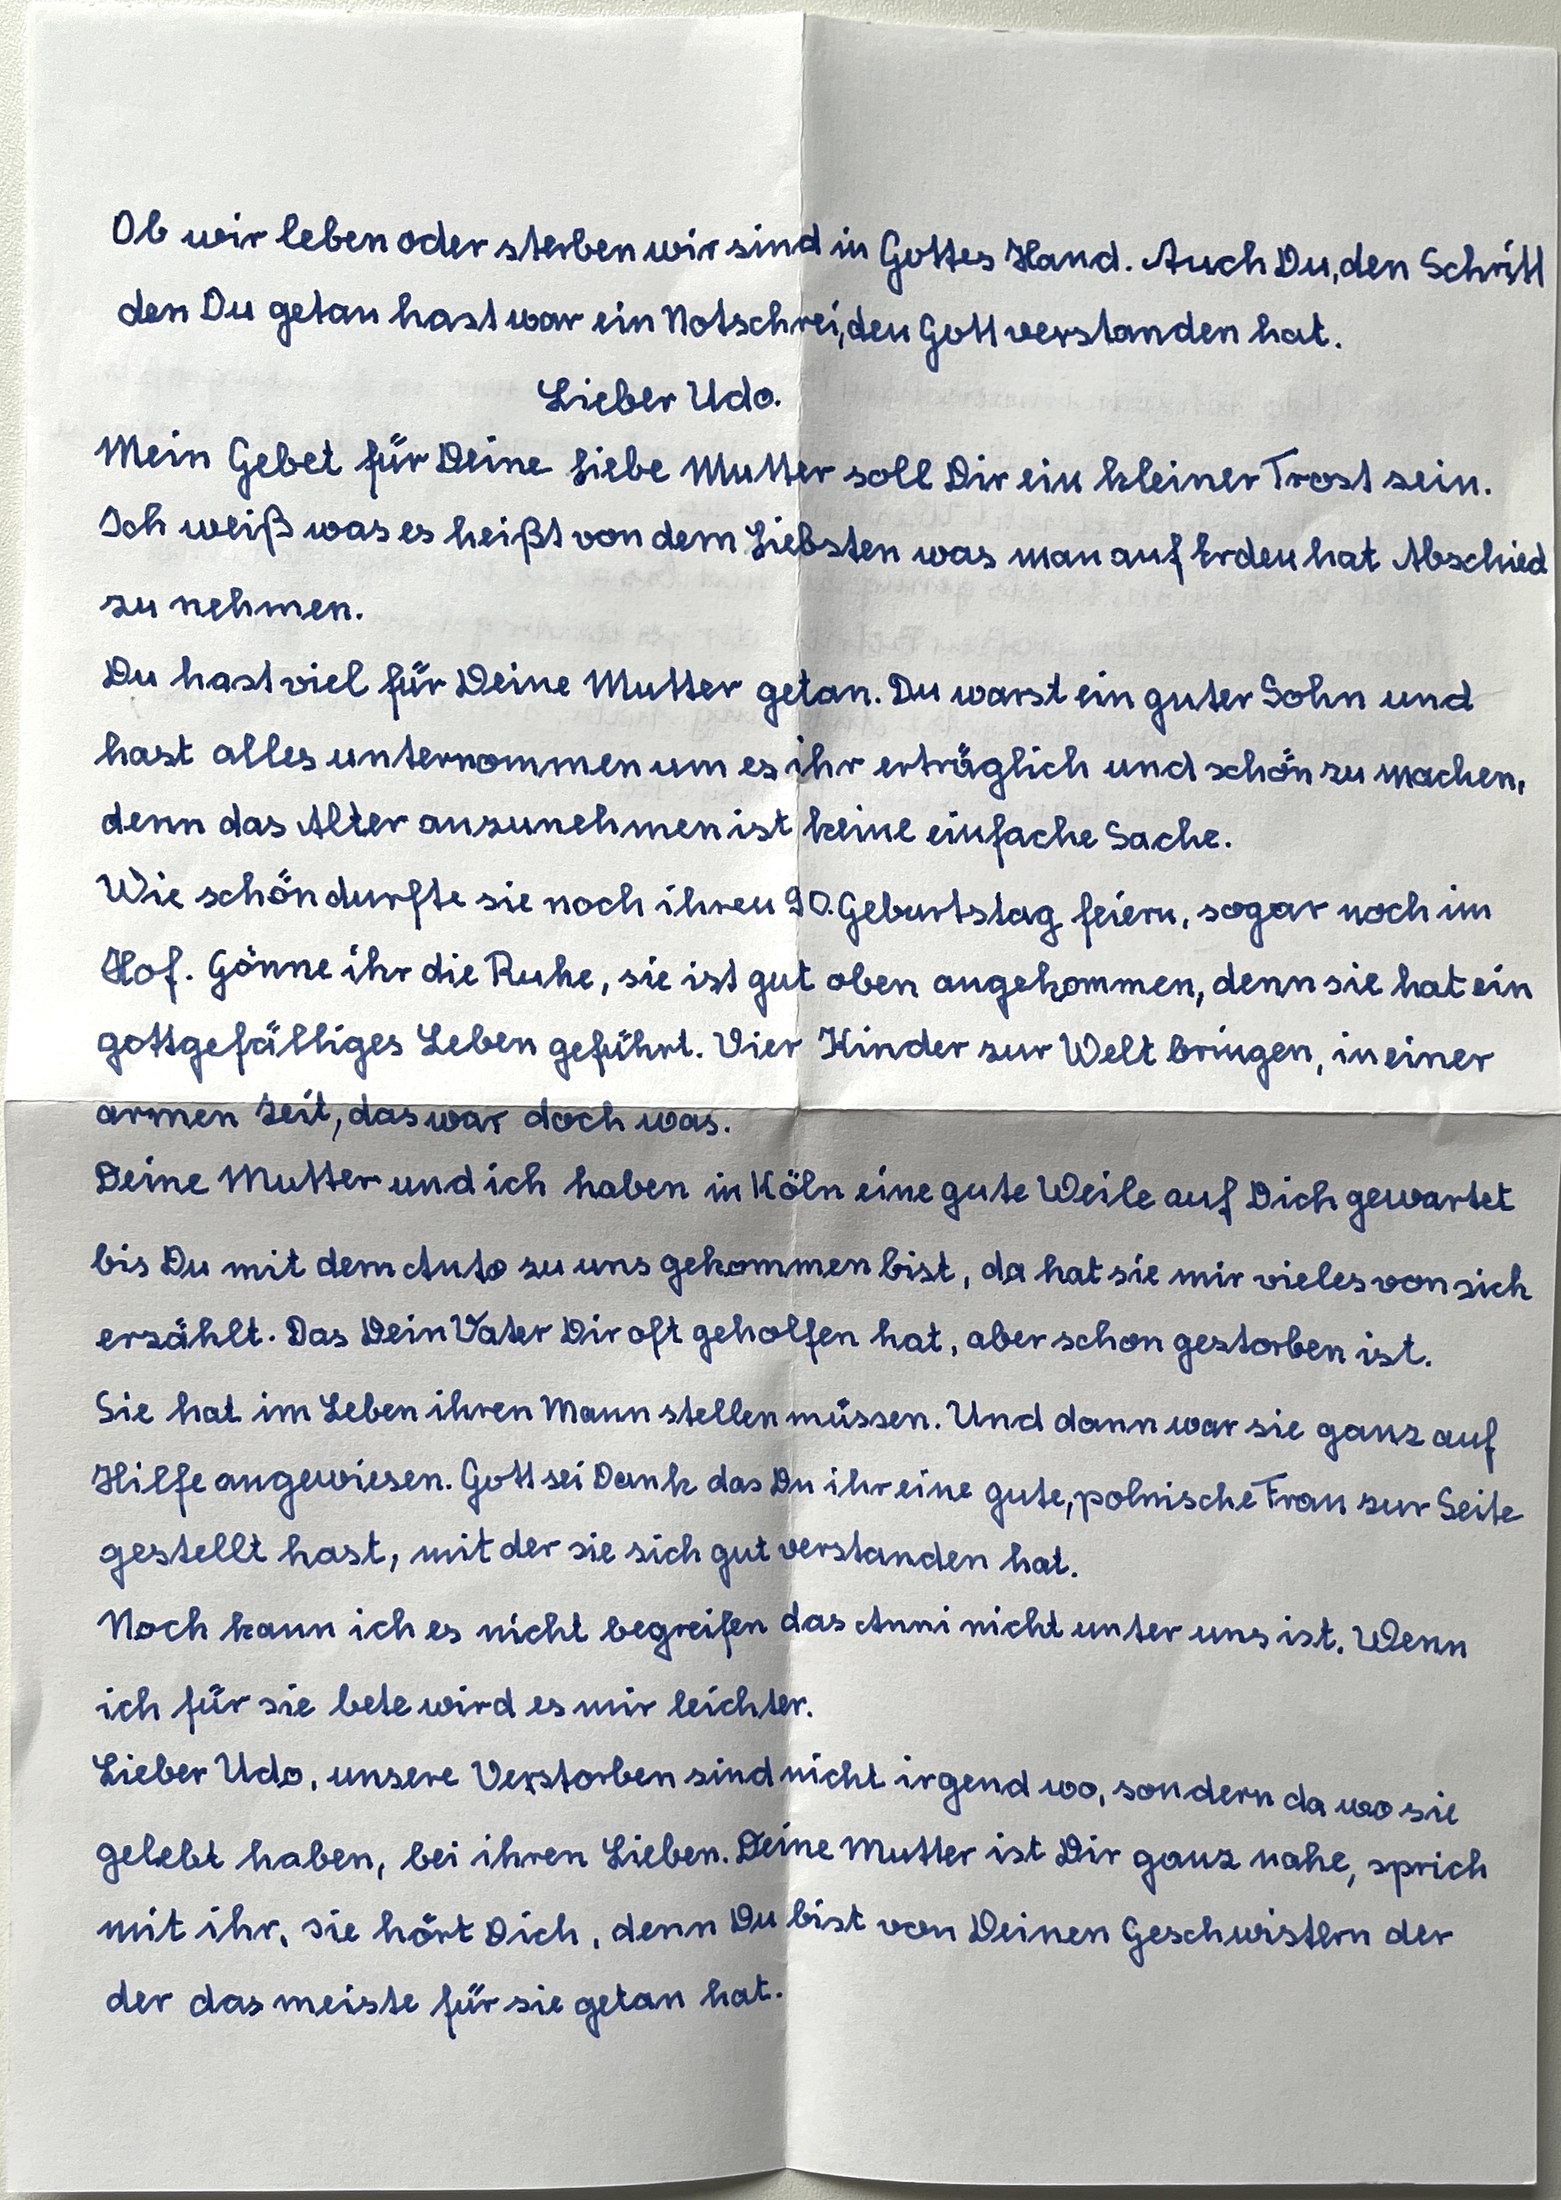 Ob wir leben oder sterben wir sind in Gottes Hand. Auch Du, den Schritt
den Du getan hast war ein Notschrei, den Gott verstanden hat.
Lieber Udo.
Mein Gebet für Deine liebe Mutter soll Dir ein kleiner Trost sein.
Ich weiß was es heißt von dem Liebsten was man auf Erden hat Abschied
zu nehmen.
Du hast viel für Deine Mutter getan. Du warst ein guter Sohn und
hast alles unternommen um es ihr erträglich und schön zu machen,
denn das Alter anzunehmen ist keine einfache Sache.
Wie schön durfte sie noch ihren 90. Geburtstag feiern, sogar noch im
Hof. Gönne ihr die Ruhe, sie ist gut oben angekommen, denn sie hat ein
gottgefälliges Leben geführt. Vier Kinder zur Welt bringen, in einer
armen Zeit, das war doch was.
Deine Mutter und ich haben in Köln eine gute Weile auf Dich gewartet
bis Du mit dem Auto zu uns gekommen bist, da hat sie mir vieles von sich
erzählt. Das Dein Vater Dir oft geholfen hat, aber schon gestorben ist.
Sie hat im Leben ihren Mann stellen müssen. Und dann war sie ganz auf
Hilfe angewiesen. Gott sei Dank das Du ihr eine gute, polnische Frau zur Seite
gestellt hast, mit der sie sich gut verstanden hat.
Noch kann ich es nicht begreifen das Anni nicht unter uns ist. Wenn
ich für sie bete wird es mir leichter.
Lieber Udo, unsere Verstorben sind nicht irgend wo, sondern da wo sie
gelebt haben, bei ihren Lieben. Deine Mutter ist Dir ganz nahe, sprich
mit ihr, sie hört Dich, denn Du bist von Deinen Geschwistern der
der das meiste für sie getan hat.